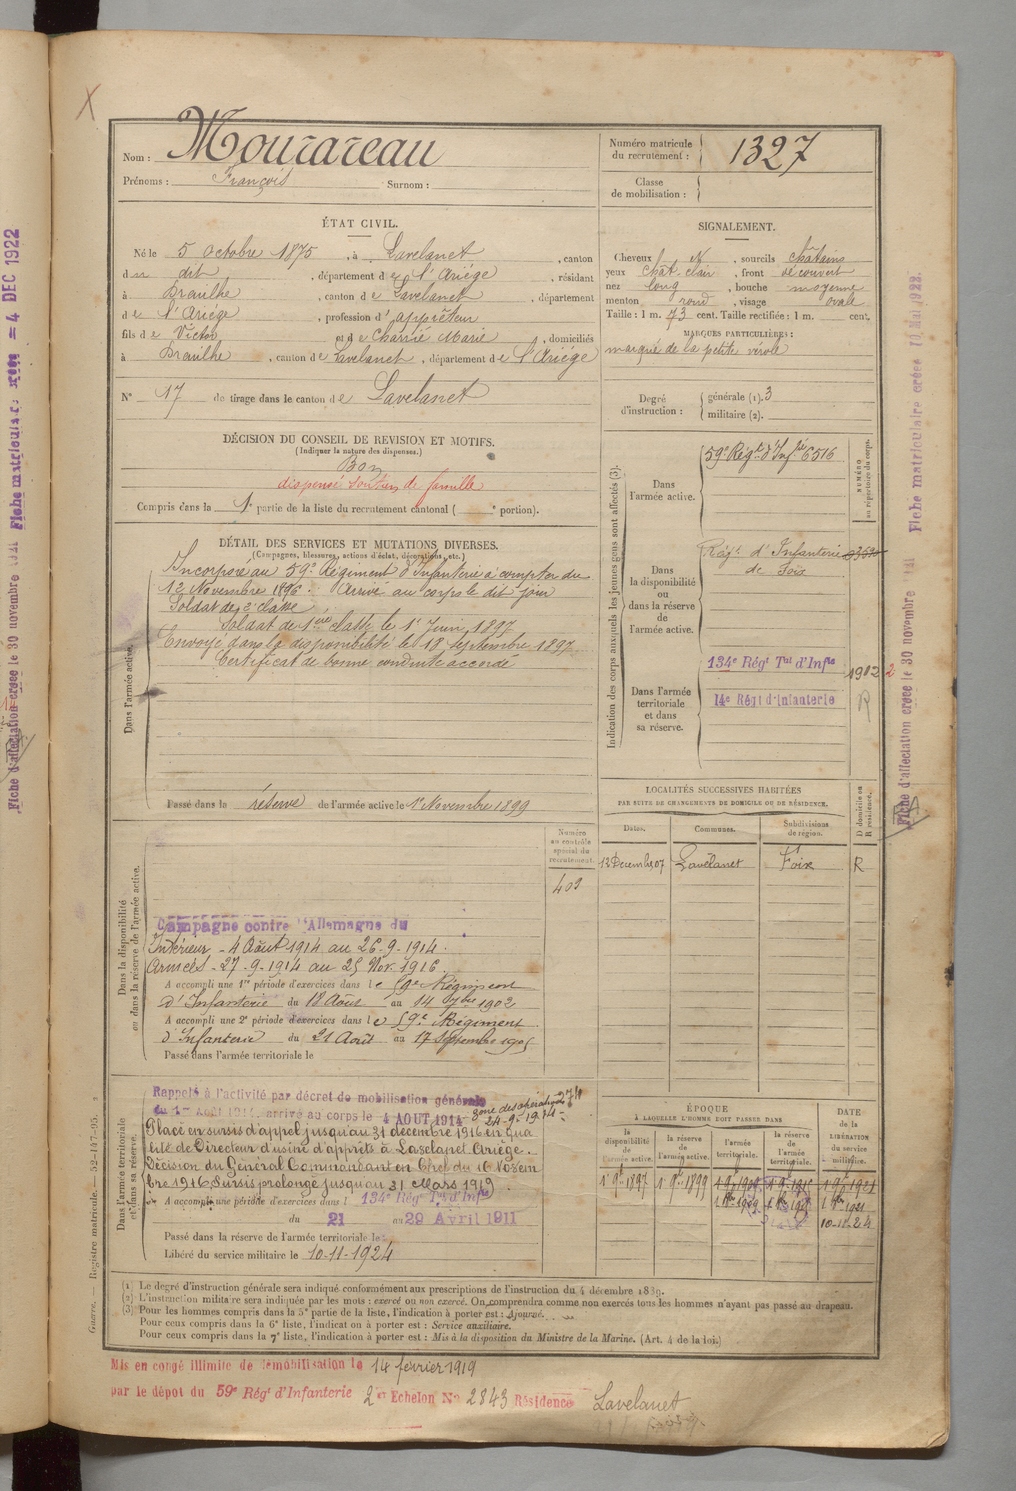 X
Nom : Mourareau
Prénoms : François Surnom :
Numéro matricule du recrutement : 1327
Classe de mobilisation :
ÉTAT CIVIL.
Né le 5 Octobre 1875, à Lavelanet, canton
du dit, département de l'Ariége, résidant
à Dreuilhe, canton de Lavelanet, département
de l'Ariége, profession d'apprêteur
fils de Victor et de Charrié Marie, domiciliés
à Dreuilhe, canton de Lavelanet, département de l'Ariége
N° 17 de tirage dans le canton de Lavelanet
SIGNALEMENT.
Cheveux et, sourcils châtains
yeux chât. clair, front découvert
nez long, bouche moyenne
menton rond, visage ovale
Taille : 1 m. 73 cent. Taille rectifiée : 1 m. cent.
MARQUES PARTICULIÈRES :
marqué de la petite vérole
Degré d'instruction : générale (1). 3
militaire (2).
DÉCISION DU CONSEIL DE REVISION ET MOTIFS.
(Indiquer la nature des dispenses.)
Bon
dispensé Soutien de famille
Compris dans la 1e partie de la liste du recrutement cantonal ( e portion).
DÉTAIL DES SERVICES ET MUTATIONS DIVERSES.
(Campagnes, blessures, actions d'éclat, décorations, etc.)
Dans l'armée active.
Incorporé au 59e Régiment d'Infanterie à compter du
12 Novembre 1896. Arrivé au corps le dit jour
Soldat de 2e classe
Soldat de 1ère classe le 1er Juin 1897
Envoyé dans la disponibilité le 18 Septembre 1897
Certificat de bonne conduite accordé
Passé dans la réserve de l'armée active le 1er Novembre 1899
Indication des corps auxquels les jeunes gens sont affectés (3).
NUMÉRO au répertoire du corps.
Dans l'armée active.
59e Régt d'Infrie 6516
Dans la disponibilité ou dans la réserve de l'armée active.
Régt d'Infanterie
de Foix
Dans l'armée territoriale et dans sa réserve.
134e Régt Tal d'Infie
14e Régt d'Infanterie
R
LOCALITÉS SUCCESSIVES HABITÉES
PAR SUITE DE CHANGEMENTS DE DOMICILE OU DE RÉSIDENCE.
Dates. Communes. Subdivisions de région. D domicile ou R résidence.
13 Décembre 07 Lavelanet Foix R
Dans la disponibilité ou dans la réserve de l'armée active.
Numéro au contrôle spécial du recrutement.
409
Campagne contre l'Allemagne du
Intérieur - 4 Août 1914 au 26-9-1914.
Armées - 27-9-1914 au 25 Nov. 1916.
A accompli une 1re période d'exercices dans le 59e Régiment
d'Infanterie du 18 Août au 14 7bre 1902
A accompli une 2e période d'exercices dans le 59e Régiment
d'Infanterie du 21 Août au 17 Septembre 1905
Passé dans l'armée territoriale le
Dans l'armée territoriale et dans sa réserve.
Rappelé à l'activité par décret de mobilisation générale
du 1er Août 1914, arrivé au corps le 4 AOUT 1914
zone des opérations 24-9-1914
Placé en sursis d'appel jusqu'au 31 décembre 1916 en qua
lité de Directeur d'usine d'apprêts à Laselanet Ariège.
Décision du Général Commandant en Chef du 16 Novem
bre 1916. Sursis prolongé jusqu'au 31 Mars 1919
A accompli une période d'exercices dans l 134e Régt Tal d'Infie
du 21 au 29 Avril 1911
Passé dans la réserve de l'armée territoriale le
Libéré du service militaire le 10-11-1924
ÉPOQUE
À LAQUELLE L'HOMME DOIT PASSER DANS
la disponibilité de l'armée active. la réserve de l'armée active. l'armée territoriale. la réserve de l'armée territoriale.
DATE de la LIBÉRATION du service militaire.
1er 9bre 1897 1er 9bre 1899
10-11-24
(1) Le degré d'instruction générale sera indiqué conformément aux prescriptions de l'instruction du 4 décembre 1889.
(2) L'instruction militaire sera indiquée par les mots : exercé ou non exercé. On comprendra comme non exercés tous les hommes n'ayant pas passé au drapeau.
(3) Pour les hommes compris dans la 5e partie de la liste, l'indication à porter est : Ajourné.
Pour ceux compris dans la 6e liste, l'indication à porter est : Service auxiliaire.
Pour ceux compris dans la 7e liste, l'indication à porter est : Mis à la disposition du Ministre de la Marine. (Art. 4 de la loi.)
Mis en congé illimité de démobilisation le 14 février 1919
par le dépôt du 59e Régt d'Infanterie 2e Echelon No 2843 Résidence Lavelanet
Guerre. — Registre matricule. — 52-147-95.
Fiche matriculaire créée le 4 DEC 1922
Fiche d'affectation créée le 30 novembre
Fiche matriculaire créée 10 Mai 1922.
Fiche d'affectation créée le 30 novembre